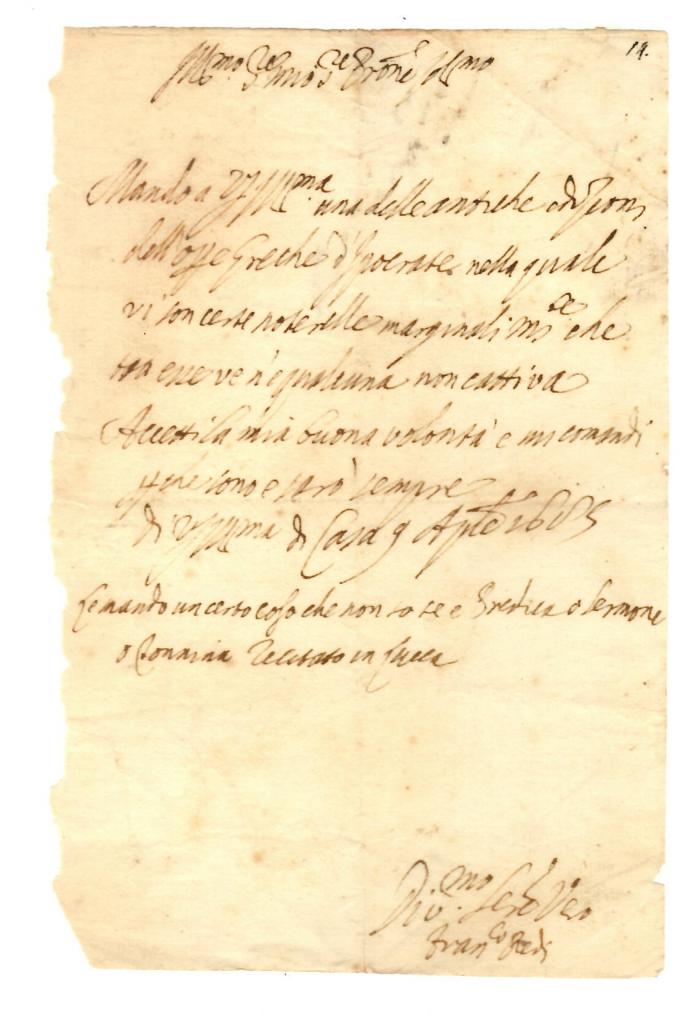 14.
Ill.mo Sig.re mio Sig.re Pron.e Col.mo
Mando a V.S. Ill.ma una delle antiche edizioni
dell'op.e Greche d'Ipocrate, nella quale
vi son certe noterelle marginali ms.te che
tra esse ve n'è qualcuna non cattiva
Accetti la mia buona volontà e mi comandi
che sono e sarò sempre
di V.S. Ill.ma di Casa 9 Ap.le 1685
Le mando un certo coso che non so se è Predica o Sermone
o recitato in Lucca
Div.mo Ser.e Vero
Fran.co Redi